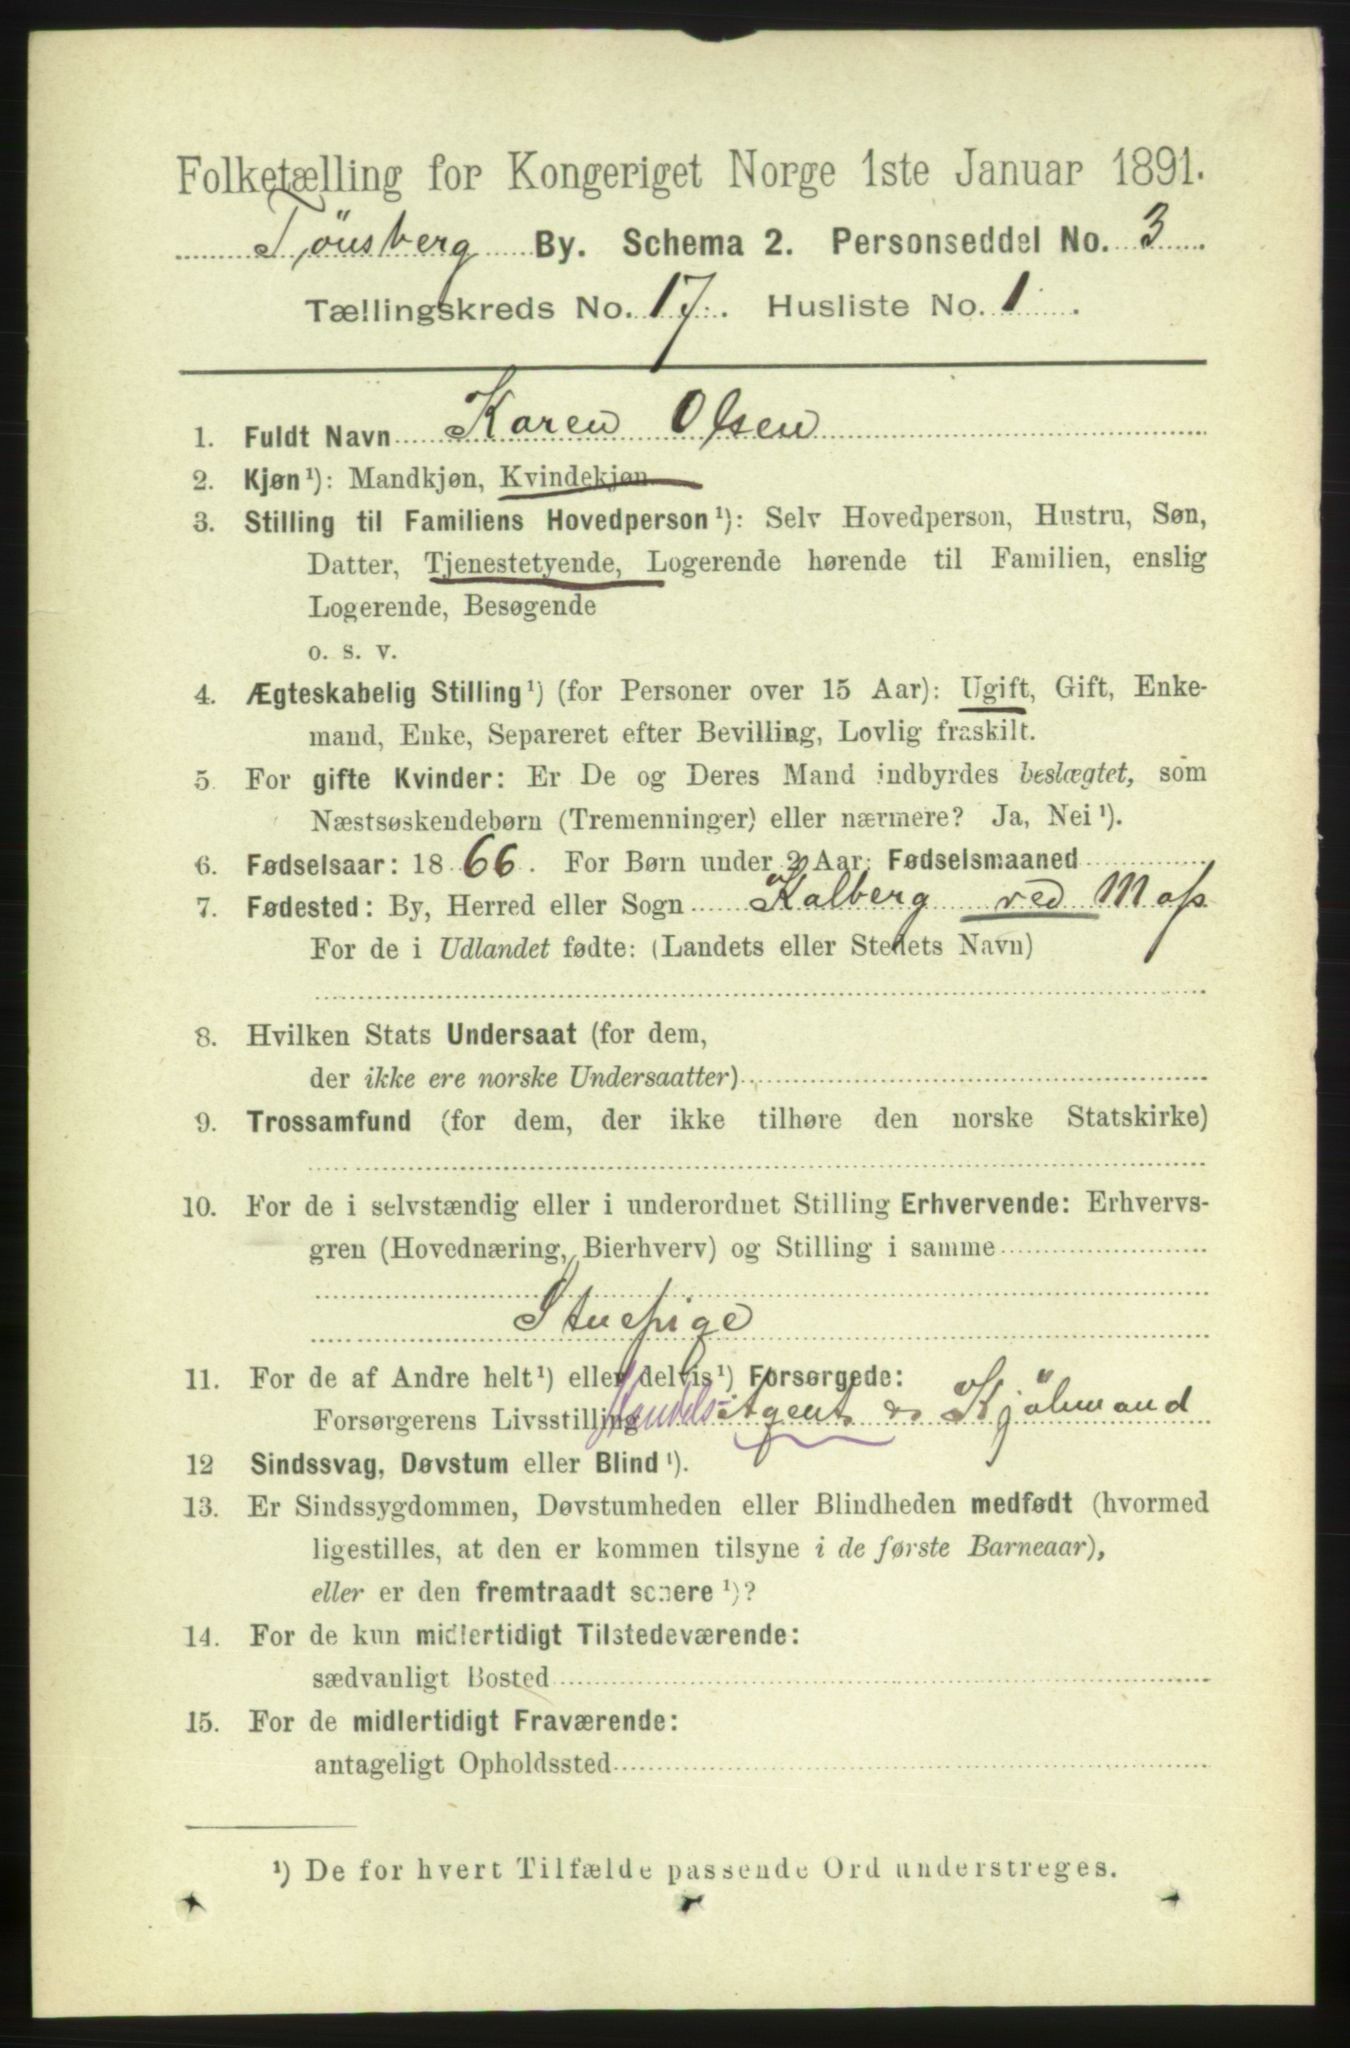 Folketælling for Kongeriget Norge 1ste Januar 1891.
Tönsberg By. Schema 2. Personseddel No. 3
Tællingskreds No. 17. Husliste No. 1.
1. Fuldt Navn Karen Olsen
2. Kjøn¹): Mandkjøn, Kvindekjøn
3. Stilling til Familiens Hovedperson¹): Selv Hovedperson, Hustru, Søn,
Datter, Tjenestetyende, Logerende hørende til Familien, enslig
Logerende, Besøgende
o. s. v.
4. Ægteskabelig Stilling¹) (for Personer over 15 Aar): Ugift, Gift, Enke-
mand, Enke, Separeret efter Bevilling, Lovlig fraskilt.
5. For gifte Kvinder: Er De og Deres Mand indbyrdes beslægtet, som
Næstsøskendebørn (Tremenninger) eller nærmere? Ja, Nei¹).
6. Fødselsaar: 1866. For Børn under 2 Aar: Fødselsmaaned
7. Fødested: By, Herred eller Sogn Kalberg ved Moss
For de i Udlandet fødte: (Landets eller Stedets Navn)
8. Hvilken Stats Undersaat (for dem,
der ikke ere norske Undersaatter)
9. Trossamfund (for dem, der ikke tilhøre den norske Statskirke)
10. For de i selvstændig eller i underordnet Stilling Erhvervende: Erhvervs-
gren (Hovednæring, Bierhverv) og Stilling i samme
Stuepige
11. For de af Andre helt¹) eller delvis¹) Forsørgede:
Forsørgerens Livsstilling Handels-Agent & Kjölmand
12 Sindssvag, Døvstum eller Blind¹).
13. Er Sindssygdommen, Døvstumheden eller Blindheden medfødt (hvormed
ligestilles, at den er kommen tilsyne i de første Barneaar),
eller er den fremtraadt senere¹)?
14. For de kun midlertidigt Tilstedeværende:
sædvanligt Bosted
15. For de midlertidigt Fraværende:
antageligt Opholdssted
¹) De for hvert Tilfælde passende Ord understreges.